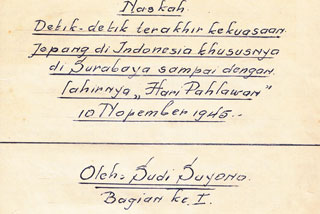 Naskah
Detik-detik terakhir kekuasaan
Jepang di Indonesia khususnya
di Surabaya sampai dengan
lahirnya „Hari Pahlawan"
10 Nopember 1945.-
Oleh: Sudi Suyono.
Bagian ke. I.